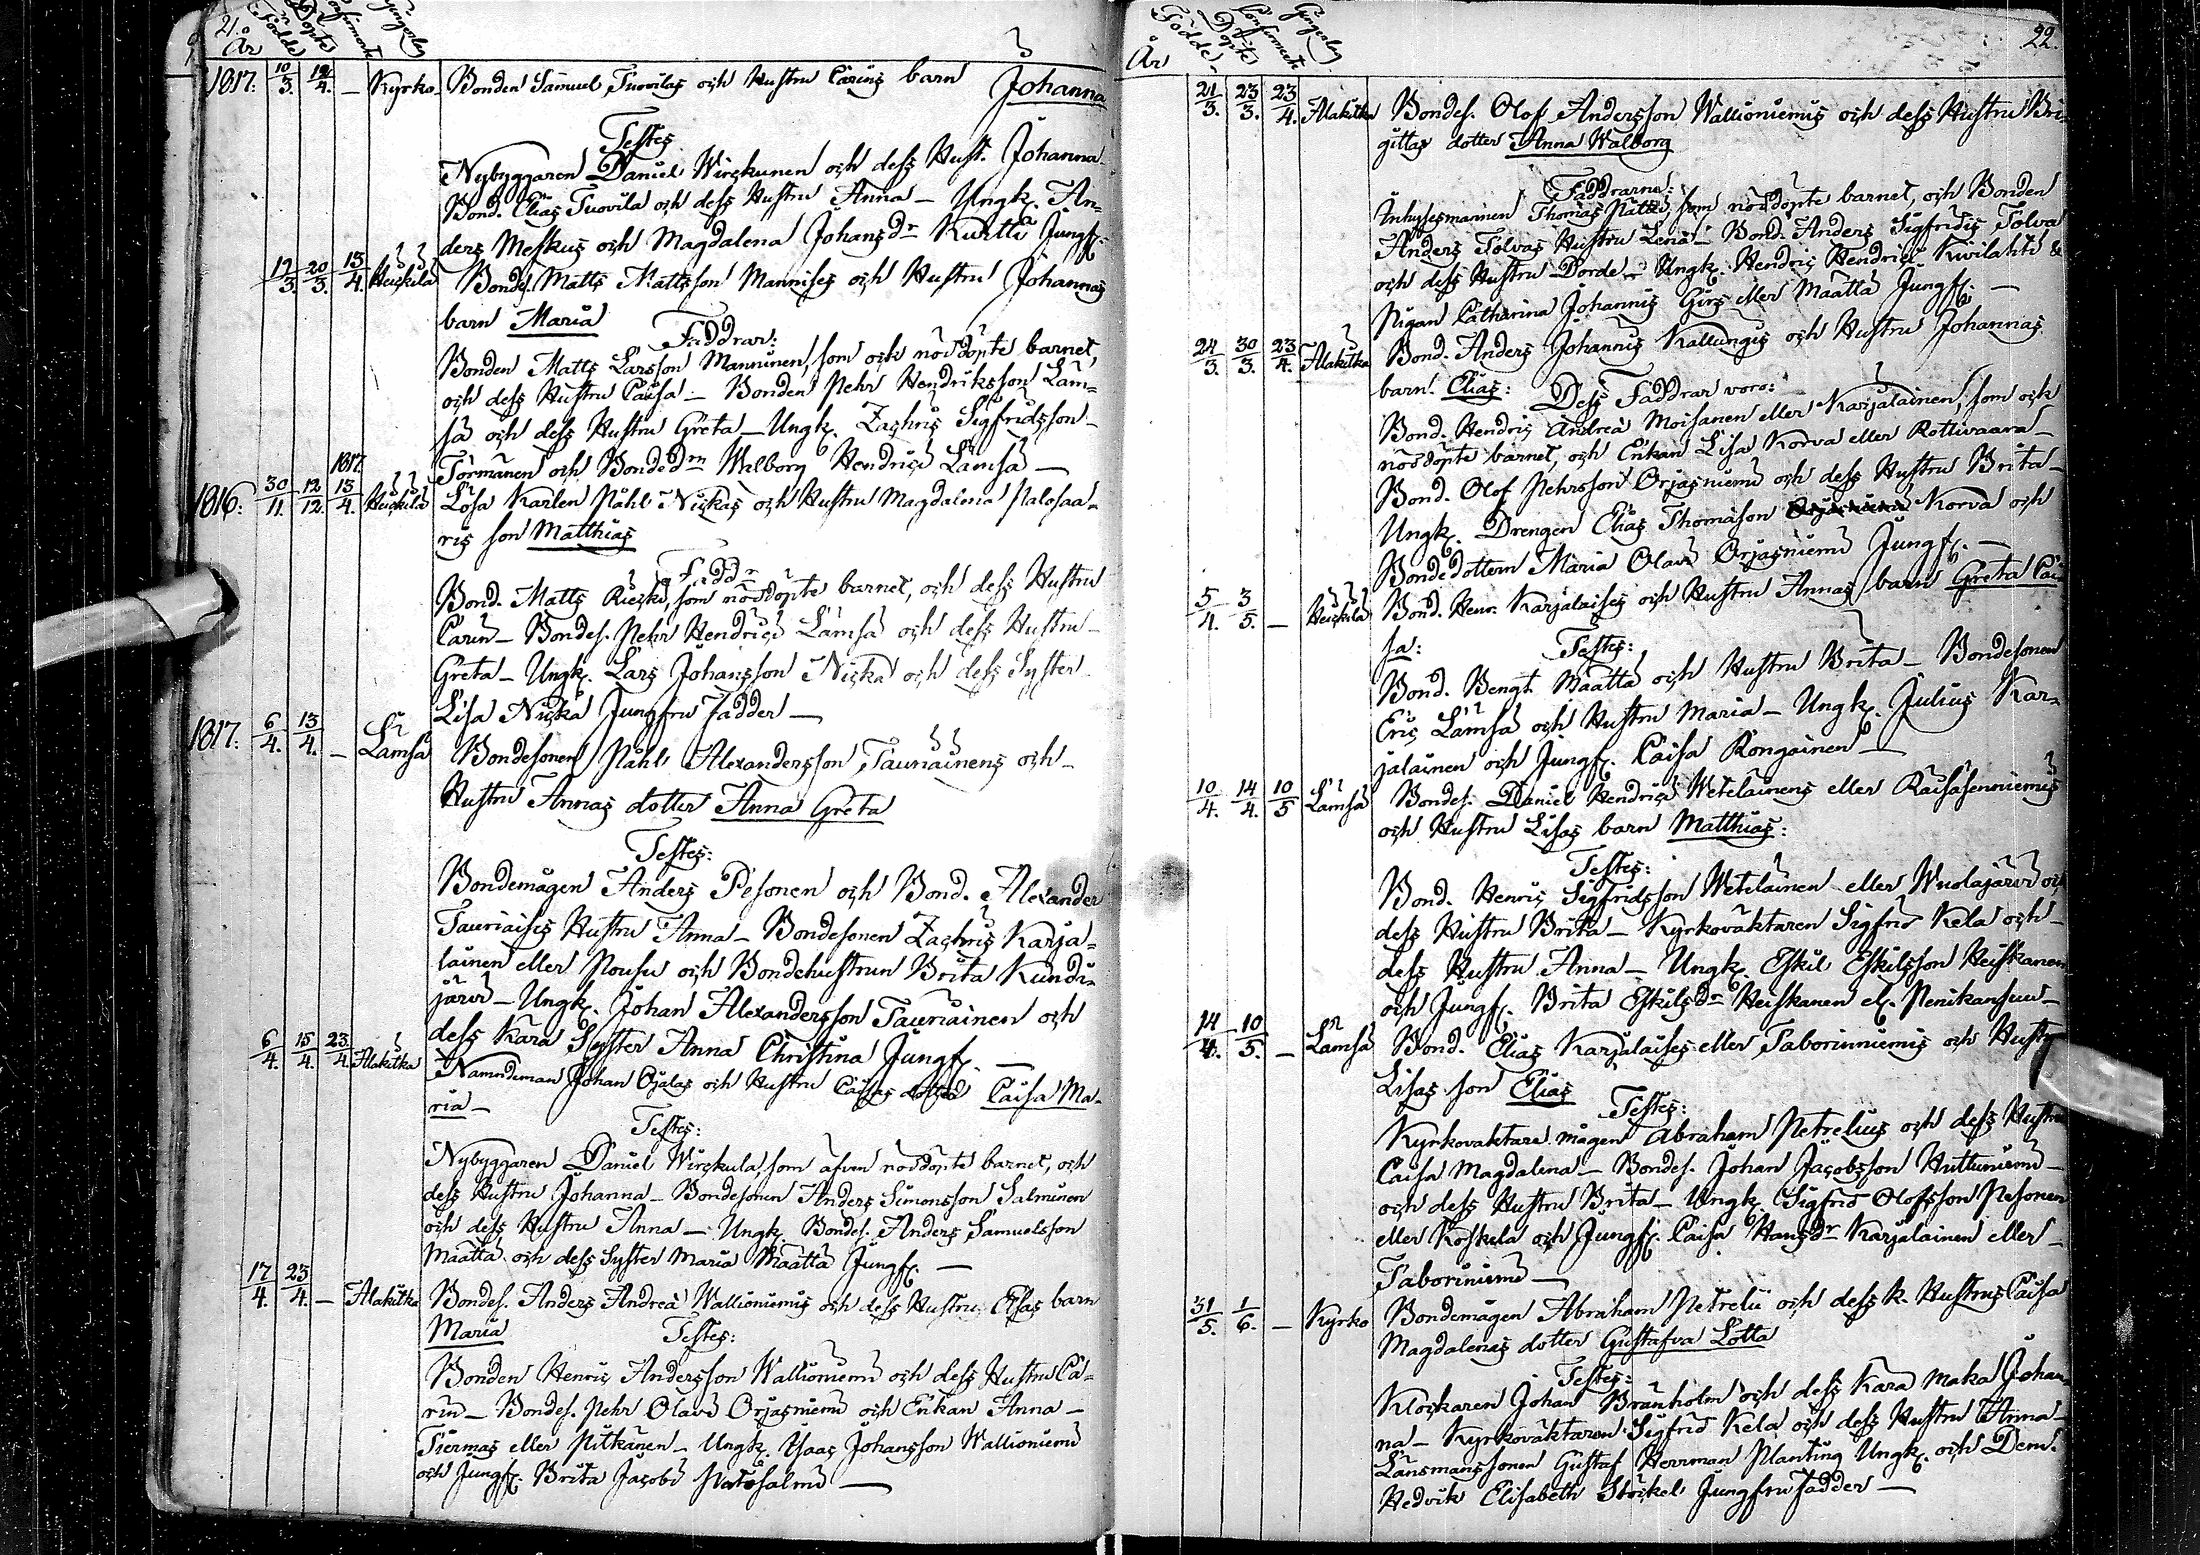 21.
År Födde Döpte Confirmerte Gingerlag
1817: 10/3. 12/4. — Kyrko Bonden Samuel Tuovilas och Hustru Carins barn Johanna
Testes
Nybyggaren Daniel Wirckunen och dess Hust. Johanna
Bond. Elias Tuovila och dess Hustru Anna — Ungk. An-
ders Meskus och Magdalena Johansdr Kurtti Jungf.
19/3. 20/3. 13/4. Heickilä Bondes. Matts Mattsson Mannises och Hustru Johannas
barn Maria
Faddrar:
Bonden Matts Larsson Manninen, som ock nöddöpte barnet,
och dess Hustru Caisa — Bonden Pehr Hendriksson Läm-
sä och dess Hustru Greta — Ungk. Zachris Sigfridsson
Törmänen och Bondedrn Walborg Hendrici Lämsä —
1816: 30/11. 12/12. 1817 13/4. Heickilä Lösa Karlen Påhl Nickas och Hustru Magdalena Palosaa-
ris son Matthias
Faddr
Bond. Matts Riecki, som nöddöpte barnet, och dess Hustru
Carin — Bondes. Pehr Hendrici Lämsä och dess Hustru
Greta — Ungk. Lars Johansson Nickä och dess Syster
Lisa Nickä Jungfru Fadder —
1817: 6/4. 13/4. — Lämsä Bondesonen Påhl Alexandersson Tauriainens och
Hustru Annas dotter Anna Greta
Testes:
Bondemågen Anders Pesonen och Bond. Alexander
Tauriaises Hustru Anna — Bondesonen Zachris Karja-
lainen eller Pousu och Bondehustrun Brita Kundi-
järvi — Ungk. Johan Alexandersson Tauriainen och
dess Kära Syster Anna Christina Jungf. —
6/4. 15/4. 23/4. Alakitka Nämndeman Johan Ojalas och Hustru Caisas dotter Caisa Ma-
ria —
Testes:
Nybyggaren Daniel Wirckula, som äfven nöddöpte barnet, och
dess Hustru Johanna — Bondesonen Anders Simonsson Salminen
och dess Hustru Anna — Ungk. Bondes. Anders Samuelsson
Määttä och dess Syster Maria Määttä Jungf. —
17/4. 23/4. — Alakitka Bondes. Anders Andreæ Wallioniemis och dess Hustru Elsas barn
Maria Testes:
Bonden Henric Andersson Wallioniemi och dess Hustru Ca-
rin — Bondes. Pehr Olavi Orjasniemi och Enkan Anna —
Tiermas eller Pitkänen — Ungk. Isaac Johansson Wallioniemi
och Jungf. Brita Jacobi Patosalmi —
22.
År Födde Döpte Confirmerte Gingerlag
21/3. 23/3. 23/4. Alakitka Bondes. Olof Andersson Wallioniemis och dess Hustru Bri-
gittas dotter Anna Walborg
Faddrarne:
Inhysesmannen Thomas Pätsi, som nöddöpte barnet, och Bonden
Anders Tolvas Hustru Lena — Bond. Anders Sigfridis Tolva
och dess Hustru Dorde — Ungk. Hendric Hendrici Kivilahti &
Pigan Catharina Johannis Girs eller Määttä Jungf. —
24/3. 30/3. 23/4. Alakitka Bond. Anders Johannis Kallungis och Hustru Johannas
barn Elias: Dess Faddrar voro:
Bond. Hendric Andreæ Moisanen eller Karjalainen, som ock
nöddöpte barnet, och Enkan Lisa Korva eller Rottivaara —
Bond. Olof Pehrsson Orjasniemi och dess Hustru Brita —
Ungk. Drengen Elias Thomasson Korva och
Bondedottern Maria Olavi Orjasniemi Jungf. —
5/4. 3/5. — Heickilä Bond. Henr. Karjalaises och Hustru Annas barn Greta Cai-
sa: Testes:
Bond. Bengt Määttä och Hustru Brita — Bondesonen
Eric Lämsä och Hustru Maria — Ungk. Julius Kar-
jalainen och Jungf. Caisa Rongainen —
10/4. 14/4. 10/5 Lämsä Bondes. Daniel Hendrici Wetelainens eller Raisäsenniemis
och Hustru Lisas barn Matthias:
Testes:
Bond. Henric Sigfridsson Wetelainen eller Wuolajärvi och
dess Hustru Brita — Kyrkoväktaren Sigfrid Kela och —
dess Hustru Anna — Ungk. Eskil Eskilsson Heiskanen
och Jungf. Brita Eskilsdr Heiskanen el. Penikansuu —
14/4. 10/5. — Lämsä Bond. Elias Karjalaises eller Taborinniemis och Hustru
Lisas son Elias
Testes:
Kyrkovaktare mågen Abraham Petrelius och dess Hustru
Caisa Magdalena — Bondes. Johan Jacobsson Huttuniemi —
och dess Hustru Brita — Ungk. Sigfrid Olofsson Pesonen
eller Koskela och Jungf. Caisa Hansdr Karjalainen eller
Taboriniemi —
31/5. 1/6. — Kyrko Bondemågen Abraham Petrelii och dess k. Hustrus Caisa
Magdalenas dotter Gustafva Lotta
Testes:
Klockaren Johan Brånholm och dess Kära Maka Johan-
na — Kyrkoväktaren Sigfrid Kela och dess Hustru Anna —
Länsmanssonen Gustaf Herrman Planting Ungk. och Dem.
Hedvik Elisabeth Stöckel Jungfru Fadder —